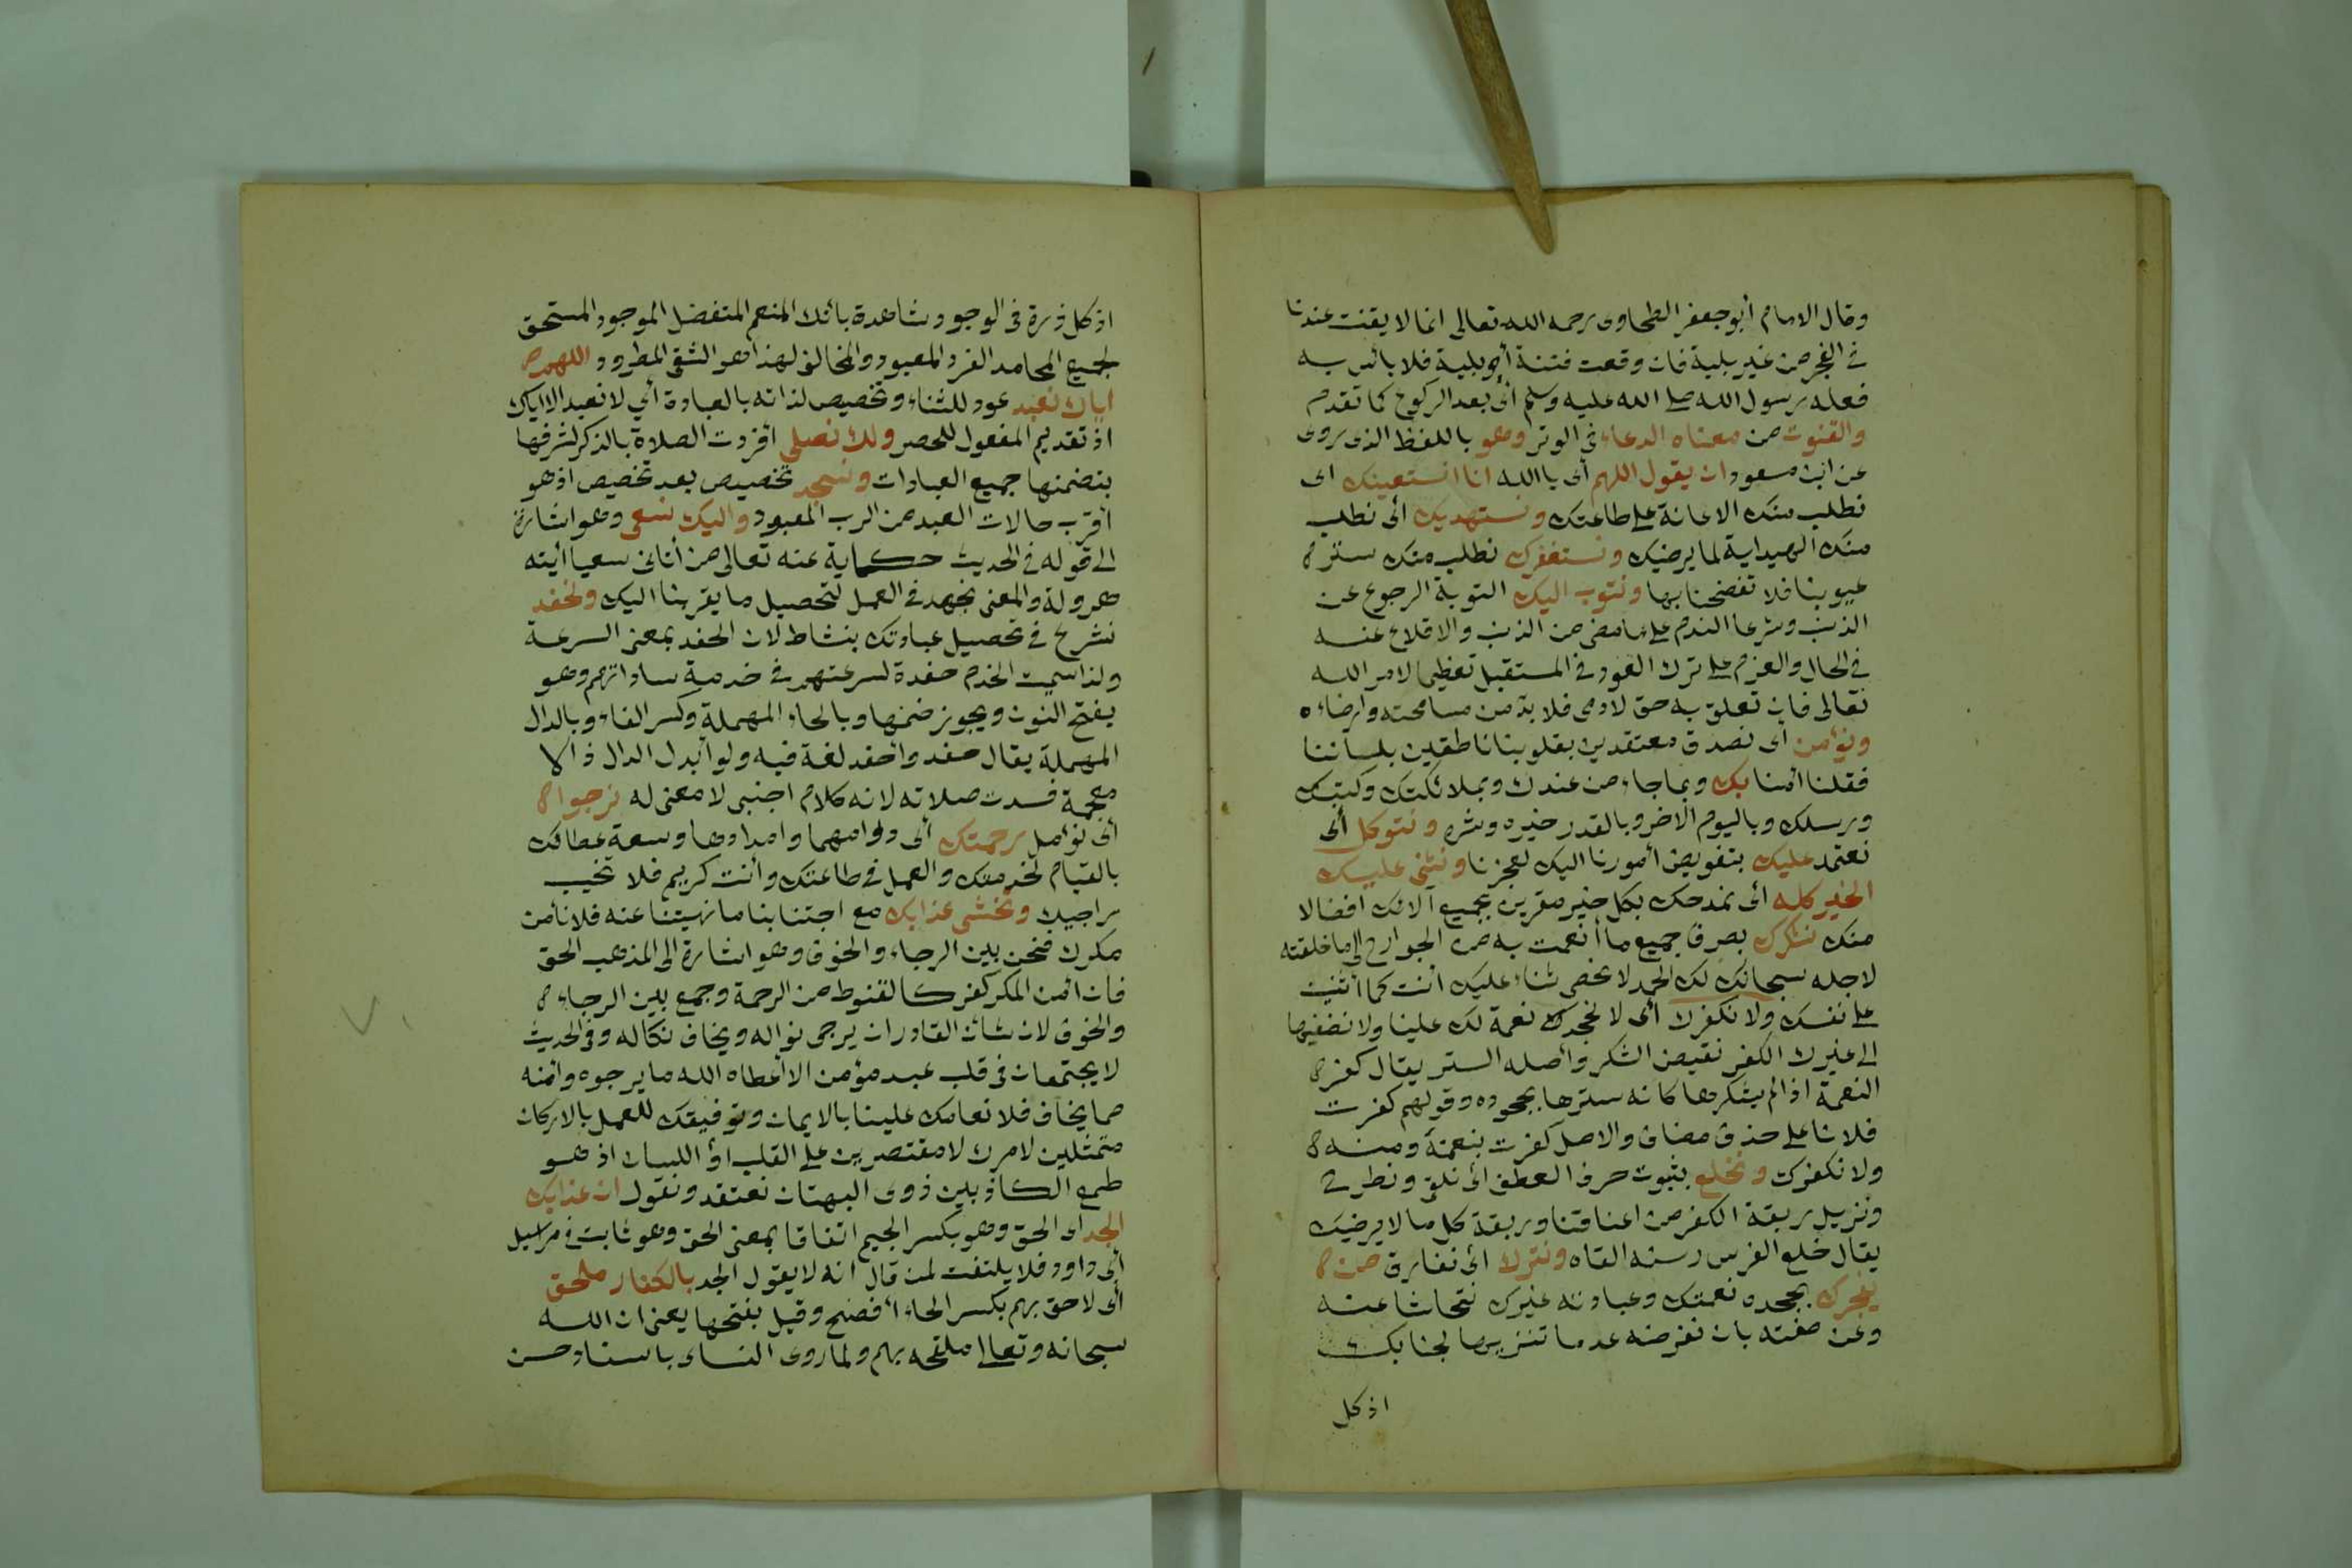 وقال الامام أبو جعفر الطحاوى رحمه الله تعالى انما لا يقنت عندنا
فى الفجر من غير بلية فان وقعت فتنة أو بلية فلا بأس به
فعله رسول الله صلى الله عليه وسلم أى بعد الركوع كما تقدم
والقنوت من معناه الدعاء فى الوتر وهو باللفظ الذى روى
عن ابن مسعود ان يقول اللهم أى يا الله انا نستعينك اى
نطلب منك الاعانة على طاعتك ونستهديك أى نطلب
منك الهداية لما يرضيك ونستغفرك نطلب منك ستر
عيوبنا فلا تفضحنا بها ونتوب اليك التوبة الرجوع عن
الذنب وشرعا الندم على ما مضى من الذنب والاقلاع عنه
فى الحال والعزم على ترك العود فى المستقبل تعظيما لامر الله
تعالى فان تعلق به حق لادمى فلا بد من مسامحته وارضاءه
ونؤمن أى نصدق معتقدين بقلوبنا ناطقين بلساننا
فقلنا امنا بك وبما جاء من عندك وبملائكتك وكتبك
ورسلك وباليوم الاخر وبالقدر خيره وشره ونتوكل أى
نعتمد عليك بتفويض أمورنا اليك لعجزنا ونثنى عليك
الخير كله أى نمدحك بكل خير مقرين بجميع آلائك افضالا
منك نشكرك بصرف جميع ما أنعمت به من الجوارح الى ما خلقته
لاجله سبحانك لك الحمد لا نحصى ثناء عليك أنت كما أثنيت
على نفسك ولا نكفرك أى لا نجحدك نعمة لك علينا ولا نضيفها
الى غيرك الكفر نقيض الشكر وأصله الستر يقال كفر
النعمة اذا لم يشكرها كانه سترها بجحوده وقولهم كفرت
فلانا على حذف مضاف والاصل كفرت بنعمته ومنه
ولا نكفرك ونخلع بثبوت حرف العطف أى نلق ونطرح
ونزيل ربقة الكفر من اعناقنا وربقة كل ما لا يرضيك
يقال خلع الفرس رسنه القاه ونترك أى نفارق من
يفجرك بجحده نعمتك وعبادته غيرك نتحاشا عنه
وعن صفته بان نفرضه عدما تنزيها لجنابك
اذ كل
اذ كل ذرة فى الوجود شاهدة بأنك المنعم المتفضل الموجود المستحق
لجميع المحامد الفرد المعبود والمخالف لهذا هو الشقى المطرود اللهم
اياك نعبد عود للثناء وتخصيص لذاته بالعبادة أي لا نعبد الا اياك
اذ تقديم المفعول للحصر ولك نصلى أفردت الصلاة بالذكر لشرفها
بتضمنها جميع العبادات ونسجد تخصيص بعد تخصيص اذ هو
أقرب حالات العبد من الرب المعبود واليك نسعى وهو اشارة
الى قوله فى الحديث حكاية عنه تعالى من أتانى سعيا أتيته
هرولة والمعنى نجهد فى العمل لتحصيل ما يقربنا اليك ونحفد
نشرع فى تحصيل عبادتك بنشاط لان الحفد بمعنى السرعة
ولذا سميت الخدم حفدة لسرعتهم فى خدمة ساداتهم وهو
بفتح النون ويجوز ضمها وبالحاء المهملة وكسر الفاء وبالدال
المهملة يقال حفد واحفد لغة فيه ولو أبدل الدال ذالا
معجمة فسدت صلاته لانه كلام اجنبى لا معنى له نرجوا
أى نؤمل رحمتك أى دوامها وامدادها وسعة عطائك
بالقيام لخدمتك والعمل فى طاعتك وأنت كريم فلا تخيب
راجيك ونخشى عذابك مع اجتنابنا ما نهيتنا عنه فلا نأمن
مكرك فنحن بين الرجاء والخوف وهو اشارة الى المذهب الحق
فان أمن المكر كفر كالقنوط من الرحمة وجمع بين الرجاء
والخوف لان شأن القادر ان يرجى نواله ويخاف نكاله وفى الحديث
لا يجتمعان فى قلب عبد مؤمن الا أعطاه الله ما يرجوه وأمنه
مما يخاف فلانعامك علينا بالايمان وتوفيقك للعمل بالاركان
متمثلين لامرك لا مقتصرين على القلب او اللسان اذ هو
طمع الكاذبين ذوى البهتان نعتقد ونقول ان عذابك
الجد اى الحق وهو بكسر الجيم اتفاقا بمعنى الحق وهو ثابت فى مراسيل
أبى داود فلا يلتفت لمن قال انه لا يقول الجد بالكفار ملحق
أى لاحق بهم بكسر الحاء أفصح وقيل بفتحها يعنى ان الله
سبحانه وتعالى ملحقه بهم ولما روى النساى باسناد حسن